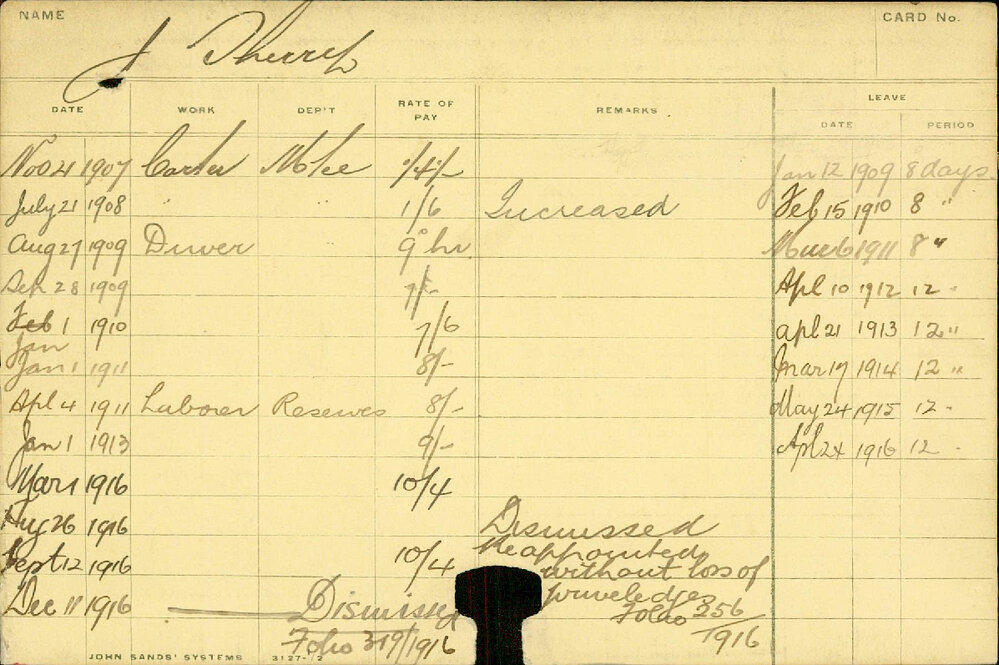 NAME
CARD No.
J Sherry
DATE WORK DEP'T RATE OF PAY REMARKS LEAVE
DATE PERIOD
Nov 21 1907 Carter 1/4/- Jan 12 1909 8 days
July 21 1908 " " 1/6 Increased Feb 15 1910 8 "
Aug 27 1909 Driver 9 hr Mar 6 1911 8 "
Sep 28 1909 7/- Apl 10 1912 12 "
Feb 1 1910 7/6 apl 21 1913 12 "
Jan
Jan 1 1911 8/- Mar 17 1914 12 "
Apl 4 1911 Laborer Reserves 8/- May 24 1915 12 "
Jan 1 1913 9/- Apl 24 1916 12 "
Mar 1 1916 10/4
Aug 26 1916 Dismissed
Sept 12 1916 10/4 Reappointed
without loss of
Dec 11 1916 Dismissed priveledges
Folio 256/1916
Folio 319/1916
JOHN SANDS' SYSTEMS 3127-12